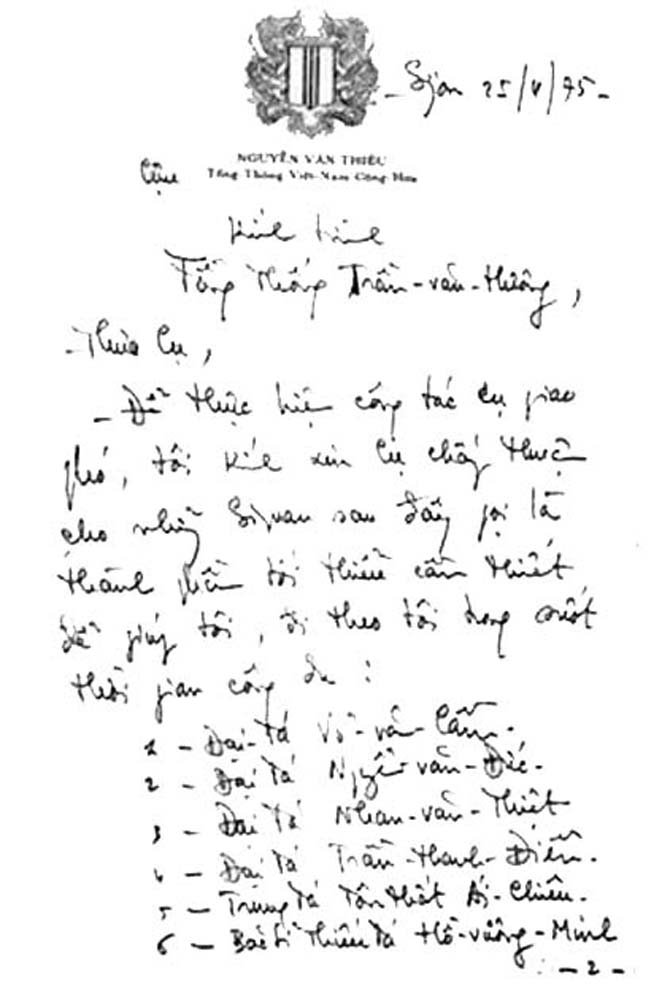 - Sgon 25/4/75 -
NGUYỄN VĂN THIỆU
Tổng Thống Việt-Nam Cộng Hòa
Kính trình
Tổng Thống Trần-văn-Hương,
- Thưa Cụ,
- Để thực hiện công tác Cụ giao
phó, tôi kính xin Cụ chấp thuận
cho những Sĩ quan sau đây gọi là
thành phần tối thiểu cần thiết
để giúp tôi, đi theo tôi trong suốt
thời gian công du :
1 - Đại-tá Võ-văn-Cầm.
2 - Đại tá Nguyễn văn-Đức.
3 - Đại tá Nhan-văn-Thiệt
4 - Đại tá Trần-thanh-Điền.
5 - Trung tá Tôn thất Ái-Chiêu.
6 - Bác sĩ Thiếu tá Hồ-vương-Minh
- 2 -